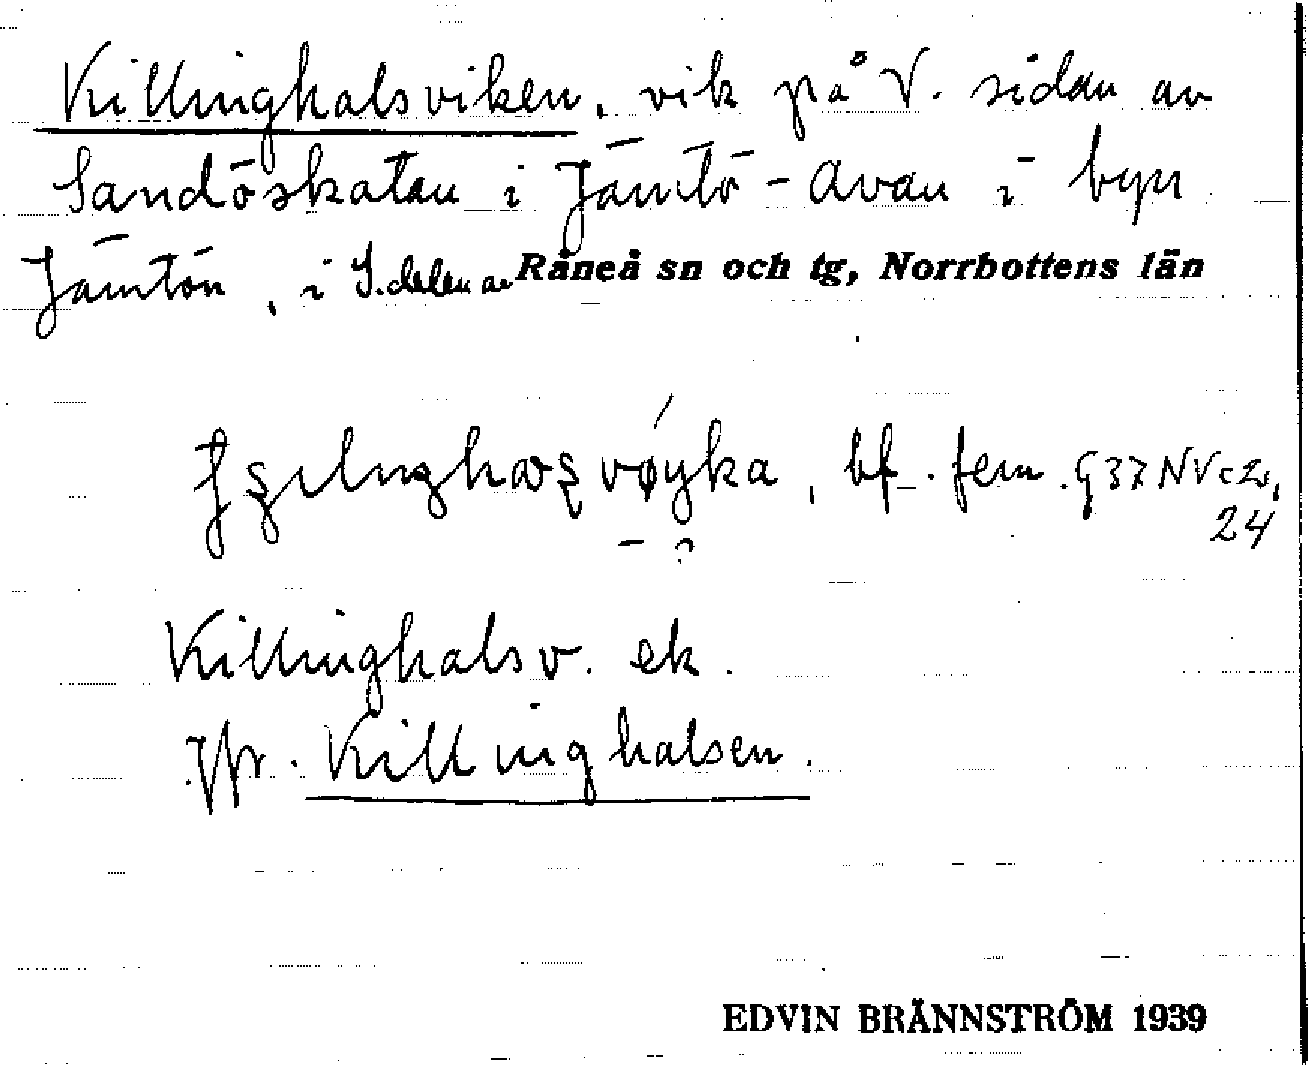 Killinghalsviken, vik på V. sidan av
Sandöskatan i Jämtö-Avan i byn
Jämtön, i S. delen av Råneå sn och tg, Norrbottens län
bf. fem. G37NVc2,
24
Killinghalsv. ek.
Jfr. Killinghalsen.
EDVIN BRÄNNSTRÖM 1939